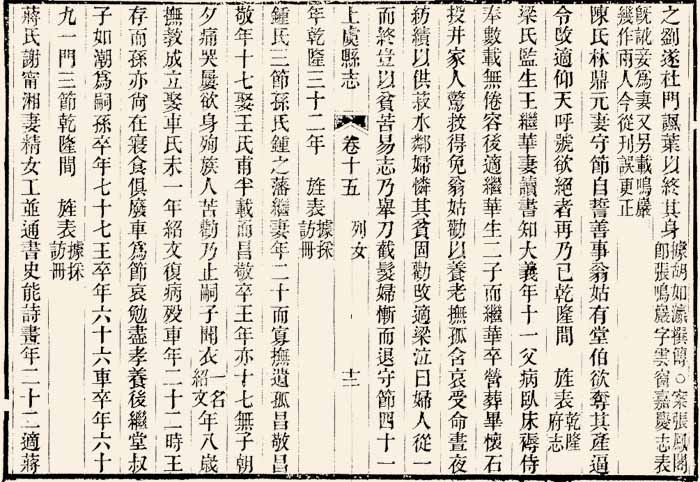 之劉遂杜門諷葉以終其身據胡如瀛撰傳○案張鳳閣卽張鳴巖字雲窗嘉慶志表
旣訛妾爲妻又另載鳴巖
幾作兩人今從刋誤更正
陳氏林鼎元妻守節自誓善事翁姑有堂伯欲奪其產逼
令改適仰天呼號欲絕者再乃已乾隆間 旌表乾隆府志
梁氏監生王繼華妻讀書知大義年十一父病臥床褥侍
奉數載無倦容後適繼華生二子而繼華卒營葬畢懷石
投井家人驚救得免翁姑勸以養老撫孤含哀受命晝夜
紡績以供菽水鄰婦憐其貧固勸改適梁泣曰婦人從一
而終豈以貧苦易志乃舉刀截髮婦慚而退守節四十一
上虞縣志 卷十五 列女 十二
年乾隆三十二年 旌表據採訪冊
鍾氏三節孫氏鍾之藩繼妻年二十而寡撫遺孤昌敬昌
敬年十七娶王氏甫半載而昌敬卒王年亦十七無子朝
夕痛哭屢欲身殉族人苦勸乃止嗣子開衣一名紹文年八歲
撫教成立娶車氏未一年紹文復病歿車年二十二時王
存而孫亦尙在寢食俱廢車爲節哀勉盡孝養後繼堂叔
子如潮爲嗣孫卒年七十七王卒年六十六車卒年六十
九一門三節乾隆間 旌表據採訪冊
蔣氏謝甯湘妻精女工並通書史能詩畫年二十二適蔣